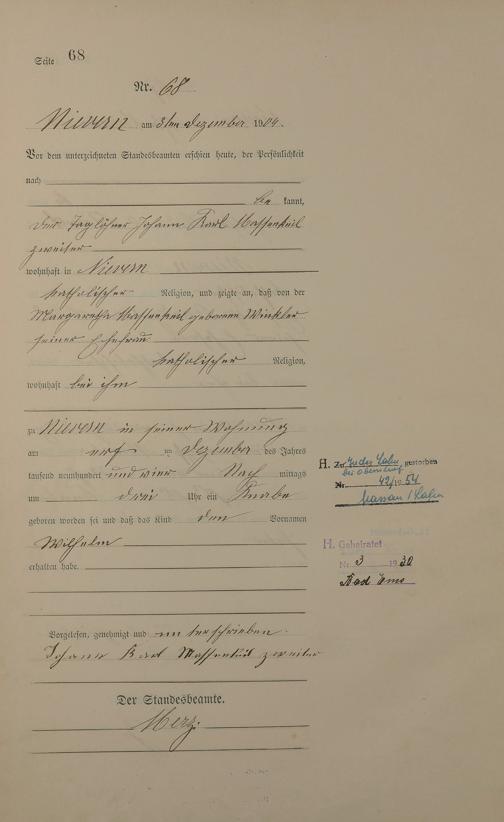 Seite 68
Nr. 68
Nievern am 8ten Dezember 1904.
Vor dem unterzeichneten Standesbeamten erschien heute, der Persönlichkeit
nach
be kannt,
der Taglöhner Johann Karl Massenkeil
zweiter
wohnhaft in Nievern
katholischer Religion, und zeigte an, daß von der
Margaretha Massenkeil geborenen Winkler
seiner Ehefrau
katholischer Religion,
wohnhaft bei ihm
zu Nievern in seiner Wohnung
am des Dezember des Jahres
tausend neunhundert und vier Nach mittags
um drei Uhr ein Knabe
geboren worden sei und daß das Kind den Vornamen
Wilhelm
erhalten habe.
Vorgelesen, genehmigt und unterschrieben
Johann Karl Massenkeil zweiter
Der Standesbeamte.
Merz.
H. Zu der Lahn gestorben
bei Obernhof
Nr. 42/1954
Nassau / Lahn
H. Geheiratet
Nr. 3 1930
Bad Ems